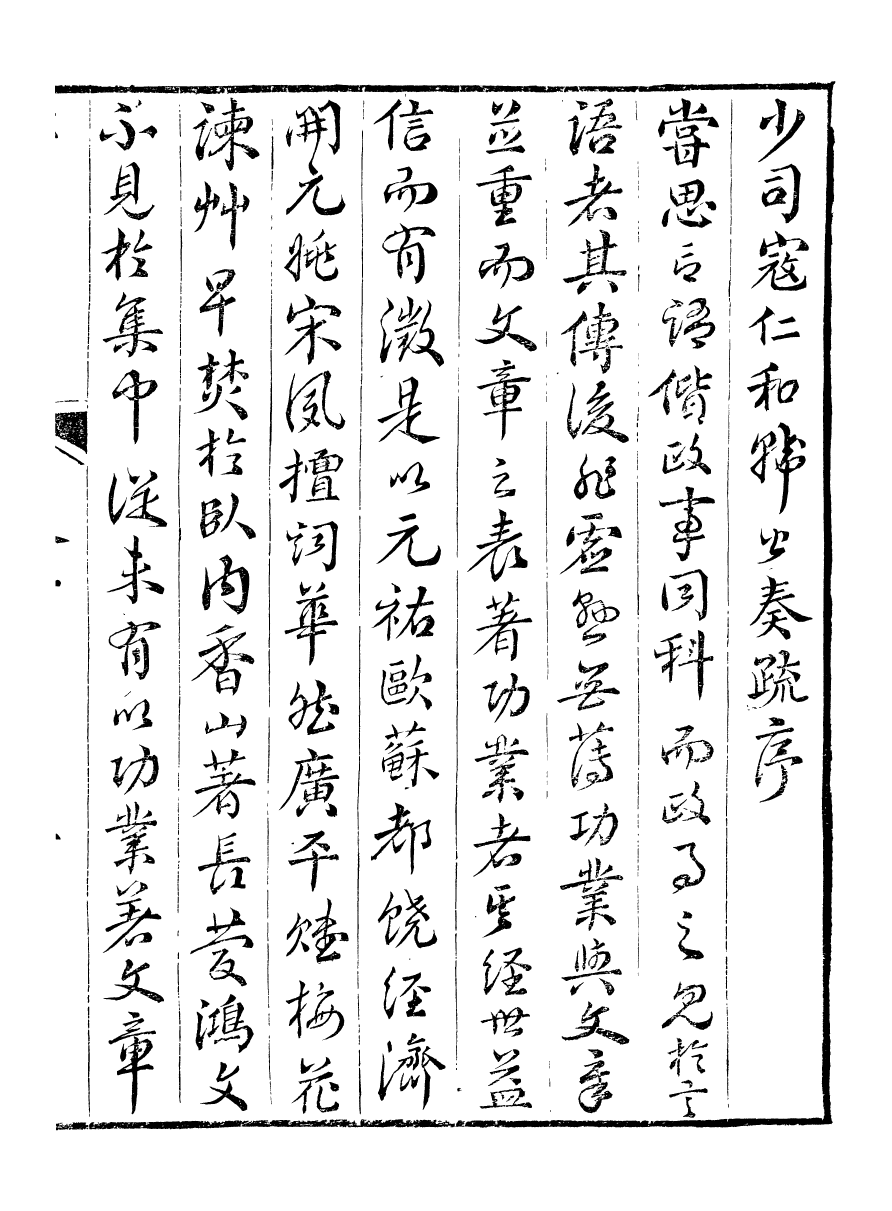 少司寇仁和公奏疏序
嘗思言語偕政事同科而政事之見於言
語者其傳後非虛懸無薄功業與文章
並重而文章之表著功業者其經世益
信而有徵是以元祐歐蘇都饒經濟
開元姚宋夙擅詞華然廣平賦梅花
諫艸早焚於臥內香山著長慶鴻文
不見於集中從未有以功業著文章